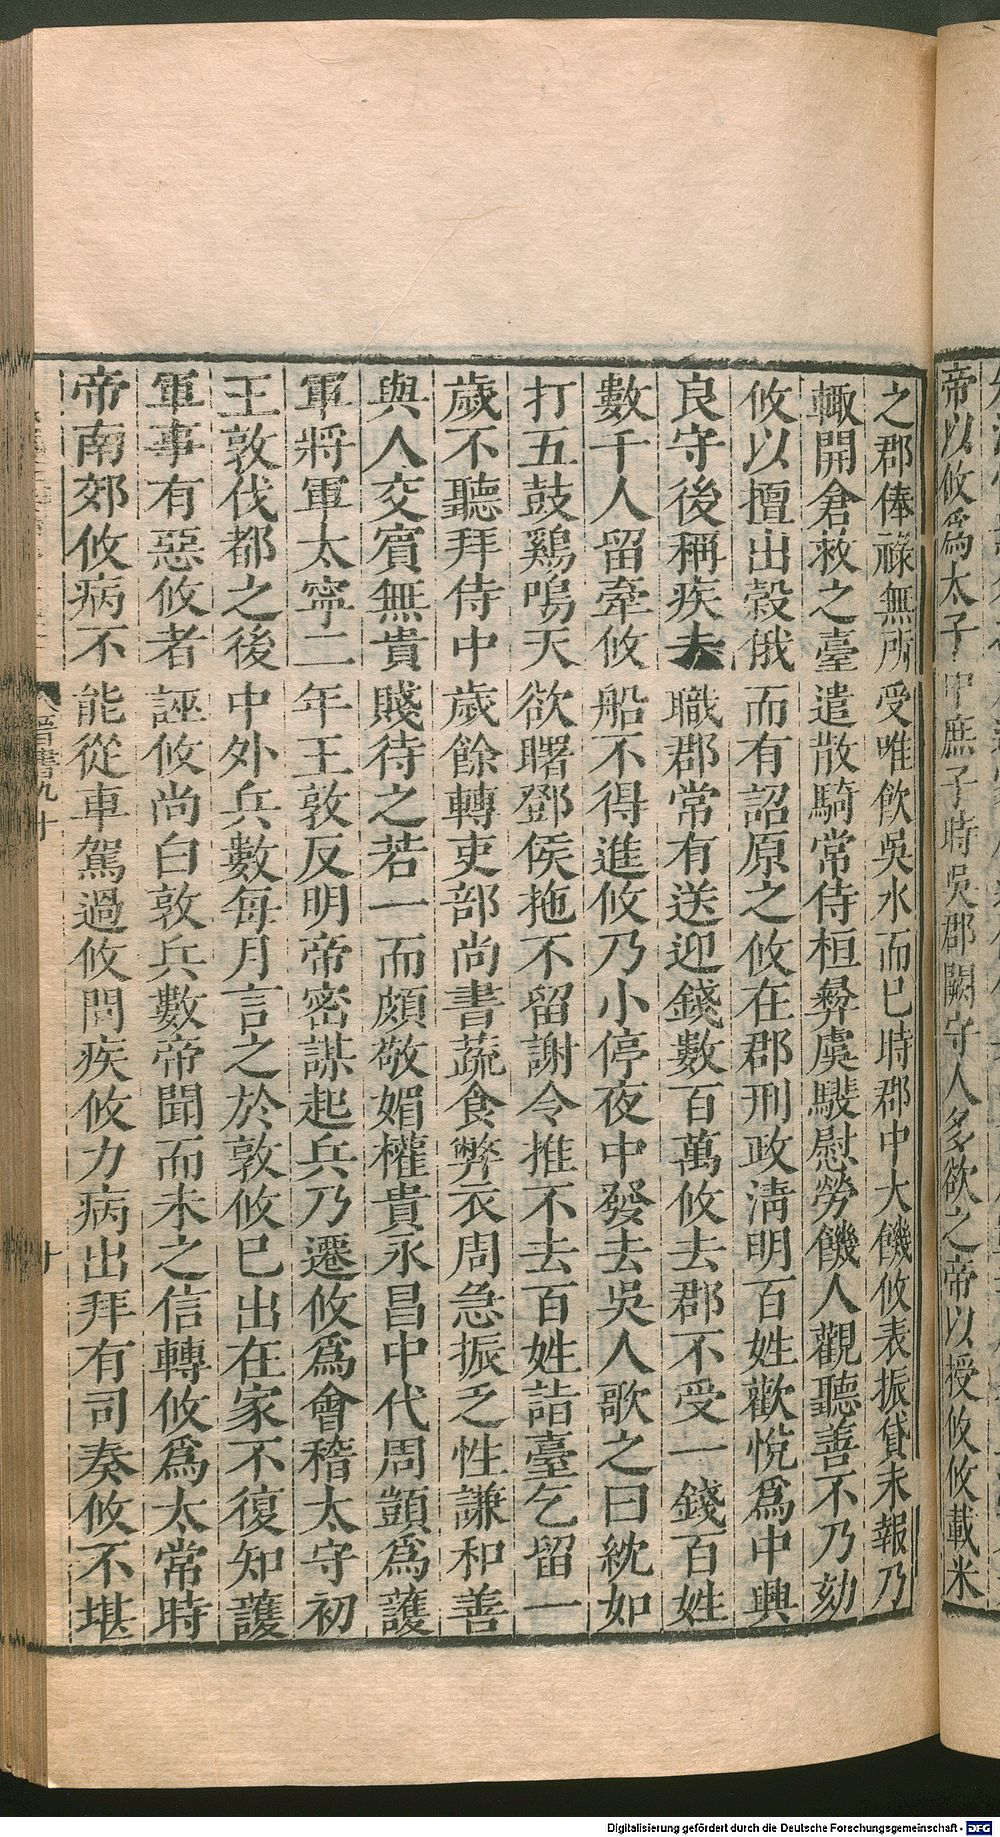 帝以攸爲太子中庶子時吳郡闕守人多欲之帝以授攸攸載米
之郡俸祿無所受唯飲吳水而已時郡中大饑攸表振貸未報乃
輙開倉救之臺遣散騎常侍桓彝虞𩥉慰勞饑人觀聽善不乃劾
攸以擅出穀俄而有詔原之攸在郡刑政淸明百姓歡悅爲中興
良守後稱疾去職郡常有送迎錢數百萬攸去郡不受一錢百姓
數千人留牽攸船不得進攸乃小停夜中發去吳人歌之曰紞如
打五鼓鷄鳴天欲曙鄧侯拖不留謝令推不去百姓詣臺乞留一
歲不聽拜侍中歲餘轉吏部尚書蔬食弊衣周急振乏性謙和善
與人交賓無貴賤待之若一而頗敬媚權貴永昌中代周顗爲護
軍將軍太寧二年王敦反明帝密謀起兵乃遷攸爲會稽太守初
王敦伐都之後中外兵數每月言之於敦攸巳出在家不復知護
軍事有惡攸者誣攸尚白敦兵數帝聞而未之信轉攸爲太常時
帝南郊攸病不能從車駕過攸問疾攸力病出拜有司奏攸不堪
晉書九十
十
Digitalisierung gefördert durch die Deutsche Forschungsgemeinschaft - DFG